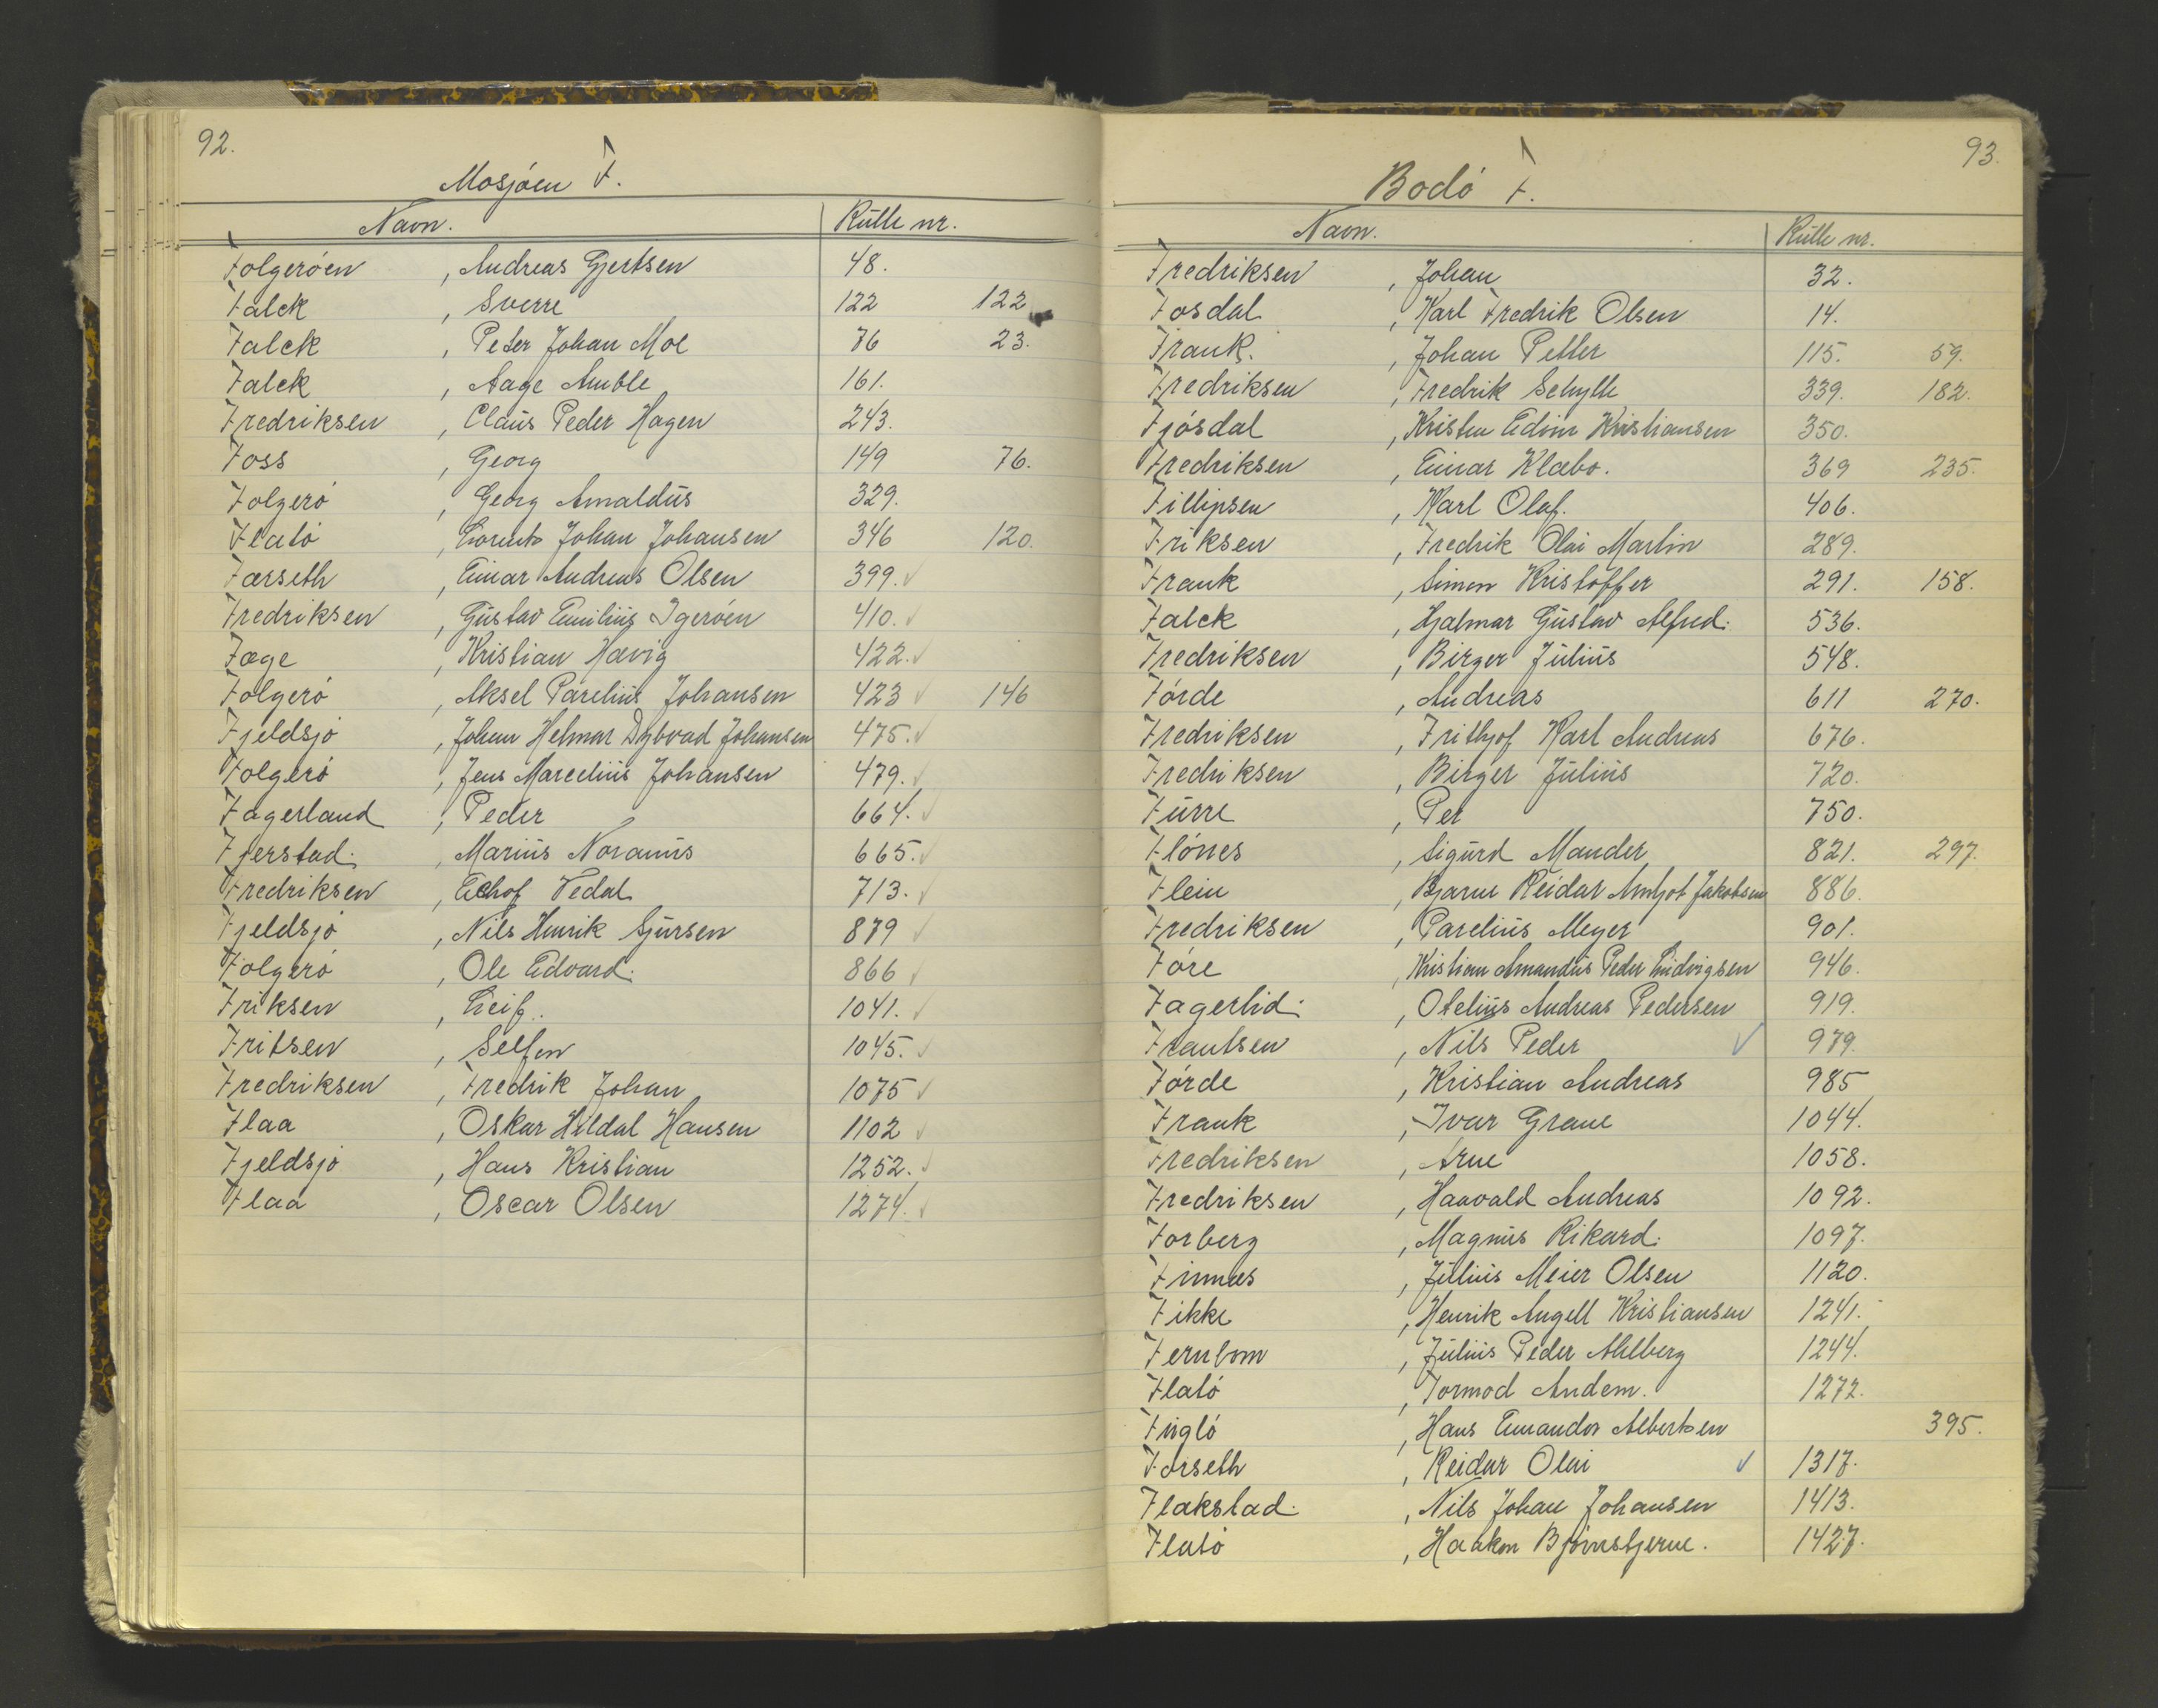 92.
Mosjöen F.
Navn. Rulle nr.
Folgeröen , Andreas Gjertsen 48.
Falck , Sverre 122 122
Falck , Peter Johan Moe 76 23.
Falck , Aage Amble 161.
Fredriksen , Claus Peder Hagen 243.
Foss , Georg 149 76.
Folgerö , Georg Arnaldus 329.
Flatö , Lorents Johan Johansen 346 120.
Farseth , Einar Andreas Olsen 399. ✓
Fredriksen , Gustav Emilius Igeröen 410. ✓
Fæge , Kristian Hævig 422. ✓
Folgerö , Aksel Parelius Johansen 423 ✓ 146
Fjeldsjö , Johan Helmar Dybvad Johansen 475. ✓
Folgerö , Jens Marcelius Johansen 479. ✓
Fagerland , Peder 664. ✓
Fjerstad. , Marius Noranus 665. ✓
Fredriksen , Edhof Vedal 713. ✓
Fjeldsjö , Nils Henrik Sjursen 879 ✓
Folgerö , Ole Edvard. 866 ✓
Friksen , Leif. 1041. ✓
Fritsen , Selfin 1045. ✓
Fredriksen , Fredrik Johan 1075 ✓
Flaa , Oskar Hildal Hansen 1102 ✓
Fjeldsjö , Hans Kristian 1252. ✓
Flaa , Oscar Olsen 1274. ✓
93.
Bodö F.
Navn. Rulle nr.
Fredriksen , Johan 32.
Fosdal , Karl Fredrik Olsen 14.
Frank. , Johan Petter 115. 59.
Fredriksen , Fredrik Schytte 339. 182.
Fjösdal , Kristen Edvin Kristiansen 350.
Fredriksen , Einar Klæbo. 369 235.
Fillipsen , Karl Olaf. 406.
Friksen , Fredrik Olai Martin 289.
Frank , Simon Kristoffer 291. 158.
Falck , Hjalmar Gustav Alfred. 536.
Fredriksen , Birger Julius 548.
Förde , Andreas 611 270.
Fredriksen , Frithjof Karl Andreas 676.
Fredriksen , Birger Julius 720.
Furre , Per 750.
Flönes , Sigurd Mander 821. 297.
Flein , Bjarne Reidar Arnhjot Jakobsen 886.
Fredriksen , Parelius Meyer 901.
Före , Kristian Amandus Peder Ludvigsen 946.
Fagerlid. , Otelius Andreas Pedersen 919.
Frantsen , Nils Peder ✓ 979.
Förde , Kristian Andreas 985
Frank , Ivar Grane 1044.
Fredriksen , Arne 1058.
Fredriksen , Haavald Andreas 1092.
Forberg , Magnus Rikard. 1097.
Finnæs , Julius Meier Olsen 1120.
Fikke , Henrik Angell Kristiansen 1241.
Fernbom , Julius Peder Ahlberg 1244.
Flatö , Tormod Andem. 1272.
Fuglö , Hans Emandor Albertsen 395.
Forseth , Reidar Olai ✓ 1317.
Flakstad. , Nils Johan Johansen 1413.
Flatö , Haakon Björnstjerne. 1427.